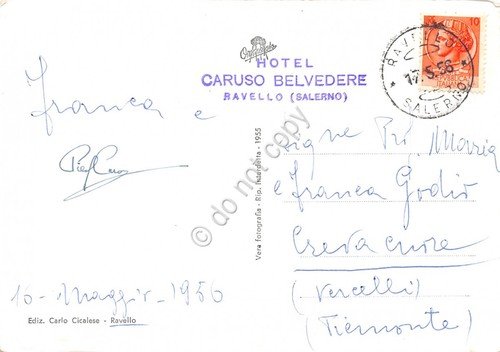 HOTEL
CARUSO BELVEDERE
RAVELLO (SALERNO)
10
RAVELLO
17.5.56
SALERNO
franca e
Vera fotografia - Rip. Interdetta - 1955
do not copy
Maria
e franca Godio
Crevacuore
(Vercelli)
(Piemonte)
10 - Maggio - 1956
Ediz. Carlo Cicalese - Ravello